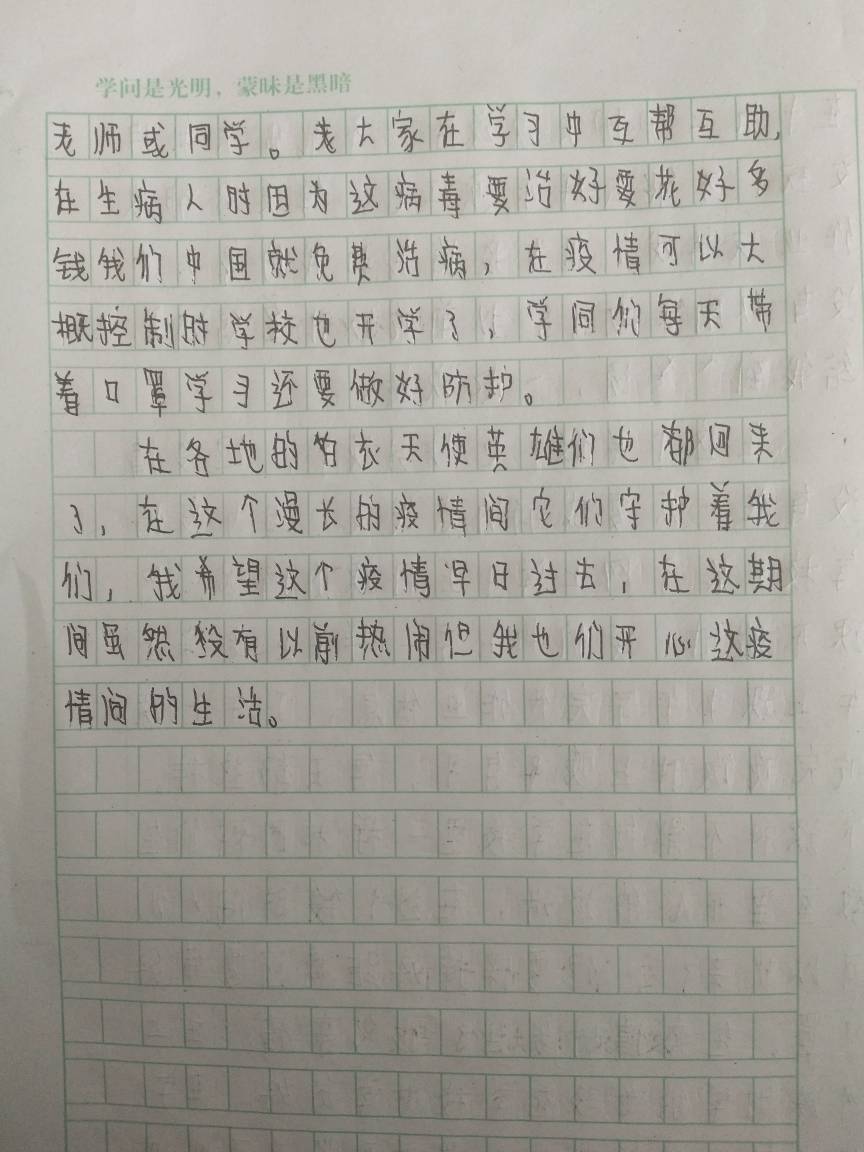 学问是光明，蒙昧是黑暗
老师或同学。老大家在学习中互帮互助，
在生病人时因为这病毒要治好要花好多
钱我们中国就免费治病，在疫情可以大
概控制时学校也开学了，学同们每天带
着口罩学习还要做好防护。
在各地的白衣天使英雄们也都回来
了，在这个漫长的疫情间它们守护着我
们，我希望这个疫情早日过去，在这期
间虽然没有以前热闹但我也们开心这疫
情间的生活。